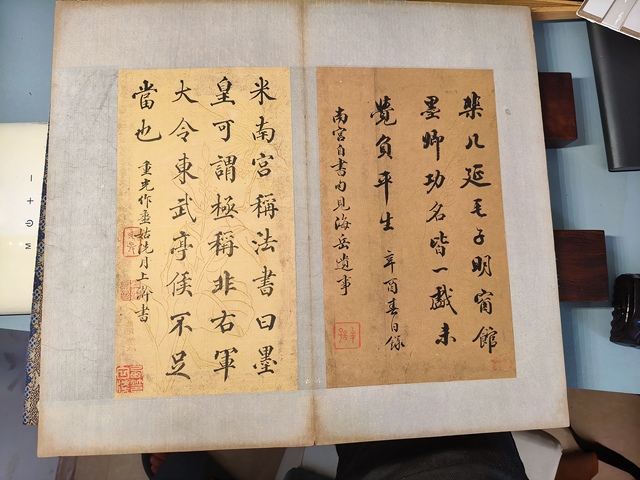 棐几延毛子明窗館
墨卿功名皆一戲未
覺負平生 辛酉春日錄
南宮自書句見海岳遺事
米南宮稱法書曰墨
皇可謂極稱非右軍
大令東武亭侯不足
當也
重光作噩姑洗月上澣書